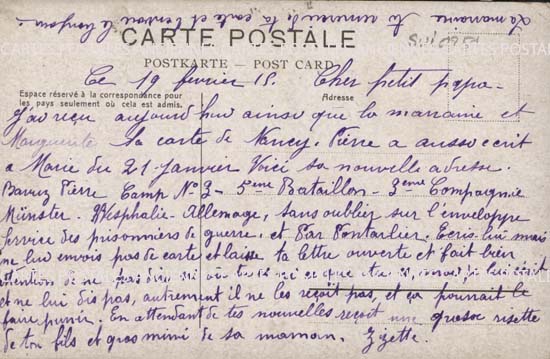 La marraine te remercie de ta carte et t'envoie le bonjour.
CARTE POSTALE
POSTKARTE — POST CARD
Espace réservé à la correspondance pour
les pays seulement où cela est admis.
Adresse
Ce 19 février 15. Cher petit papa.
J'ai reçu aujourd'hui ainsi que la marraine et
Marguerite ta carte de Nancy. Pierre a aussi écrit
a Marie du 21 Janvier Voici sa nouvelle adresse.
Pierre Camp No 2 - 5ème Bataillon - 3ème Compagnie
Münster - Westphalie - Allemagne, sans oublier sur l'enveloppe
Service des prisonniers de guerre. et Par Pontarlier. Ecris lui mais
ne lui envois pas de carte et laisse ta lettre ouverte et fait bien
attention de ne pas dire ni où tu ni ce que
et ne lui dis pas, autrement il ne les reçoit pas, et ça pourrait le
faire punir. En attendant de tes nouvelles reçoit une grosse risette
de ton fils et gros mimi de sa maman. Zizette.